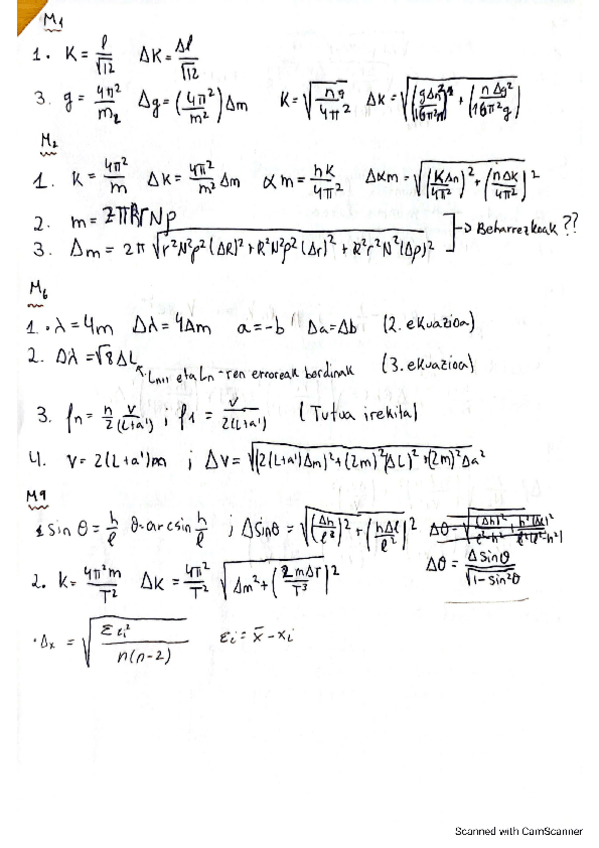 M₁
1. K = l/√12 ΔK = Δl/√12
3. g = 4π²/m₂ Δg = (4π²/m²)Δm K = √(ng/4π²) ΔK = √((gΔn/16π²n)² + (nΔg²/16π²g))
M₂
1. K = 4π²/m ΔK = 4π²/m² Δm αm = hK/4π² Δαm = √((KΔn/4π²)² + (nΔK/4π²)²)
2. m = 2πRrNρ
3. Δm = 2π√(r²N²ρ²(ΔR)² + R²N²ρ²(Δr)² + R²r²N²(Δρ)²) → Beharrezkoak ??
M₆
1. λ = 4m Δλ = 4Δm a = -b Δa = Δb (2. ekuazioa)
2. Δλ = √8 ΔL (3. ekuazioa)
Lₙ₊₁ eta Lₙ-ren erroreak berdinak
3. fₙ = n/2 v/(L+a') ; f₁ = v/2(L+a') (Tutua irekita)
4. v = 2(L+a')m ; Δv = √((2(L+a')Δm)² + (2m)²(ΔL)² + (2m)²Δa²)
M9
1 sin θ = h/l θ = arcsin h/l ; Δsinθ = √((Δh/l²)² + (hΔl/l²)²)
Δθ = Δsinθ/√(1-sin²θ)
2. K = 4π²m/T² ΔK = 4π²/T² √(Δm² + (2mΔT/T³)²)
·Δx = √(Σεi²/n(n-2)) εi = x̄ - xi
Scanned with CamScanner